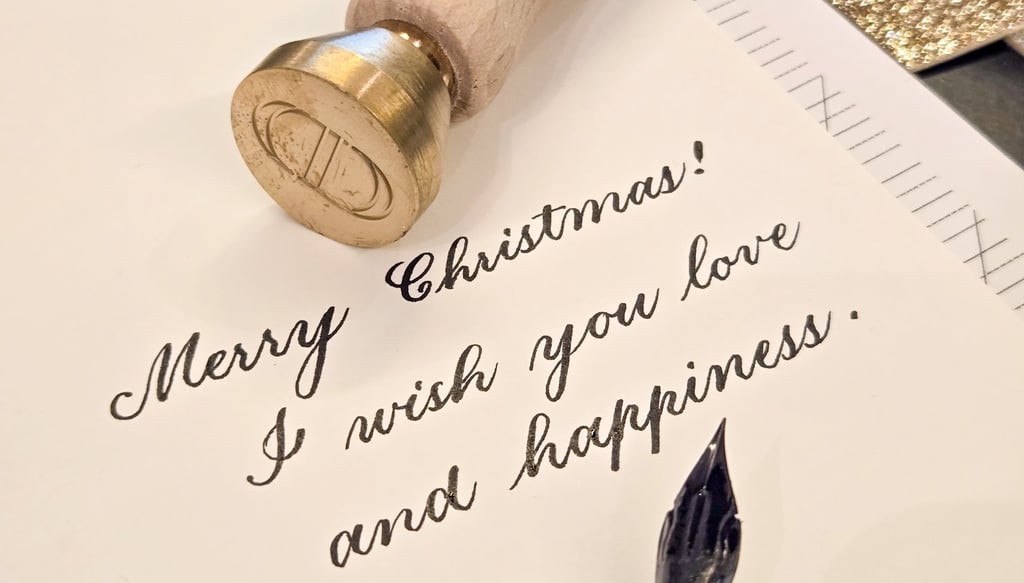 Merry Christmas!
I wish you love
and happiness.